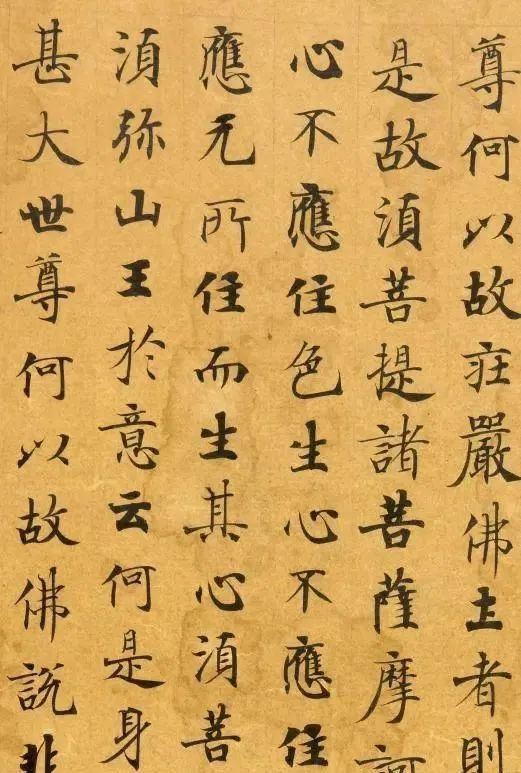 尊何以故疘嚴佛土者則
是故湏菩提諸菩薩摩訶
心不應住色生心不應住
應无所住而生其心湏菩
湏弥山王於意云何是身
甚大世尊何以故佛說非